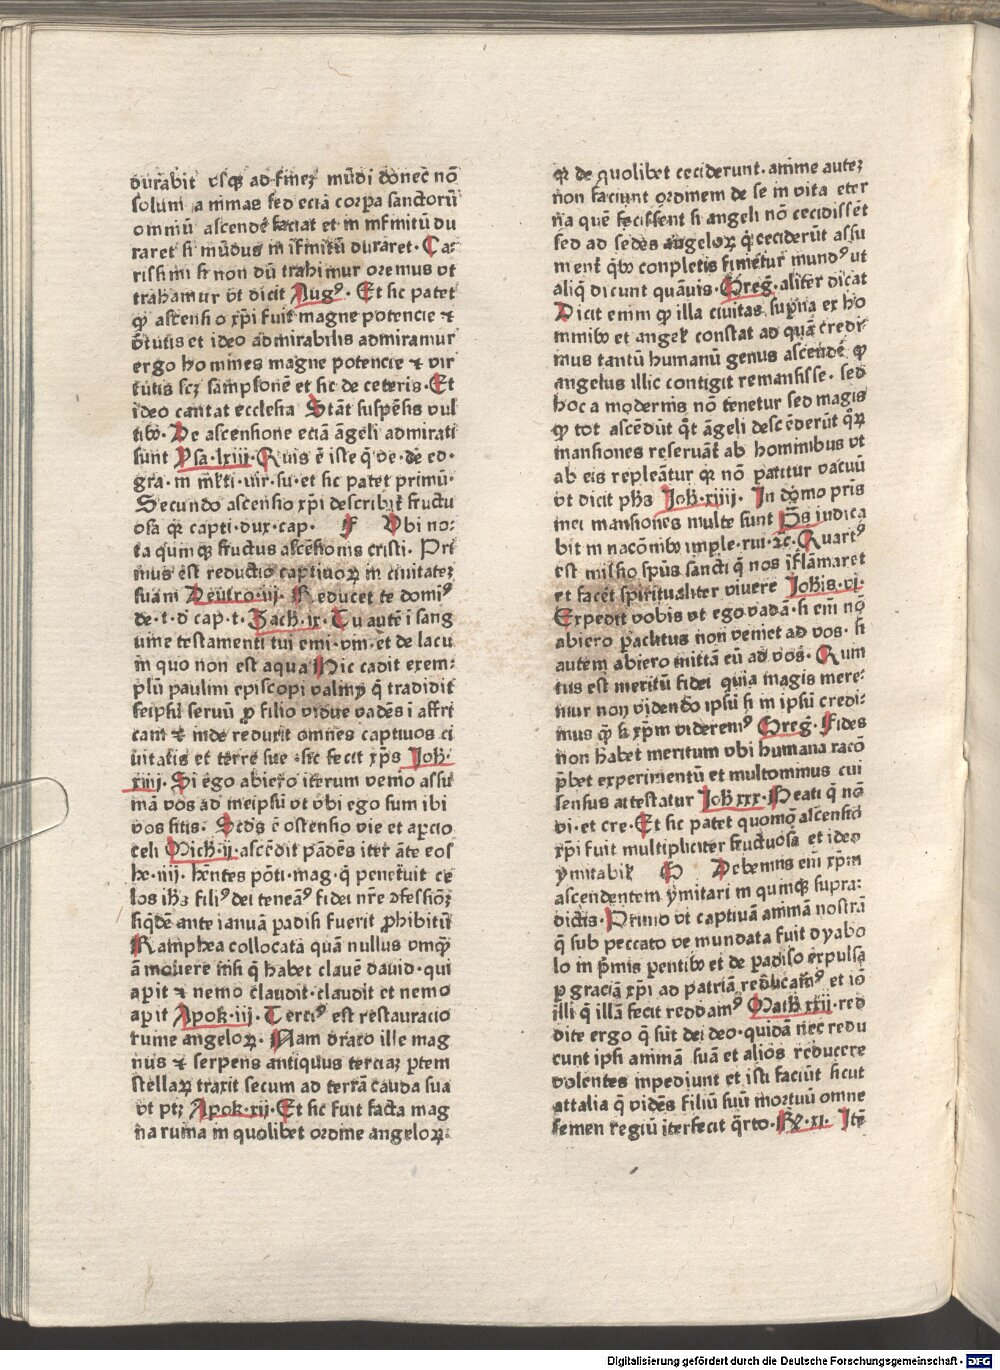 durabit vsqꝫ ad fineꝫ mūdi donec̄ nō
solum a nimas sed eciā corꝑa sanctorū
omniū ascendē faciat et in infinitū du
raret si mūdus in īfinitū duraret· Ca⸗
rissimi si non dū trahimur oremus vt
trahamur vt dicit Augꝰ· Et sic patet
ꝙ ascensio xp̄i fuit magne potencie ⁊
v̄tutis et ideo admirabilis admiramur
ergo homines magne potencie ⁊ vir
tutis scꝫ sampsonē et sic de ceteris· Et
ideo cantat ecclesia Stāt suspēsis vul
tibꝰ· De ascensione eciā āgeli admirati
sunt Psa·lxiii· Quis ē iste q̄ ve·de ed⸗
gra· in ml̄ti·uir·su·et sic patet primū·
Secundo ascensio xp̄i describit̄ fructu
osa qꝛ capti·dux·cap· F Vbi no⸗
ta quinqꝫ fructus ascēsionis cristi· Pri
mus est reductio captiuoꝝ in ciuitateꝫ
suam Deutro·vj· Reducet te domiꝰ
de·t·d̄ cap·t· Zach·ix· Tu autē i sang
uine testamenti tui emi·vin·et de lacu
in quo non est aqua Hic cadit exem⸗
plū paulini episcopi valmꝭ q̄ tradidit
seipsū seruū ꝓ filio vidue vadēs ī affri
cam ⁊ inde reduxit omnes captiuos ci
uitatis et terre sue ·sic fecit xp̄s Joh·
xiiij· Si ego abiero iterum venio assu
mā vos ad meipsū vt vbi ego sum ibi
vos sitis· Sed̄s ē ostensio vie et aꝑcio
celi Mich·ij·ascēdit pādēs iter āte eos
he·iiij· hēntes pōti·mag·q̄ penetͣuit ce
los ihꝫ filiꝰ dei teneaꝰ fidei nr̄e ꝯfessiōꝫ
siqdē ante ianuā padisi fuerit ꝓhibitū
Ramphea collocata quā nullus vmqꝫ
ā mouere nisi q̄ habet clauē dauid·qui
aꝑit ⁊ nemo claudit·claudit et nemo
aꝑit Apok·iij· Terciꝰ est restauracio
ruine angeloꝝ· Nam draco ille mag
nus ⁊ serpens antiquus terciaꝫ ꝑtem
stellaꝝ traxit secum ad terrā cauda sua
vt ptꝫ Apok·xij· Et sic fuit facta mag
na ruina in quolibet ordine angeloꝝ·
qꝛ de quolibet ceciderunt·anime auteꝫ
non faciunt ordinem de se in vita eter
na que fecissent si angeli nō cecidissēt
sed ad sedes angeloꝝ q̄ ceciderūt assu
ment̄ qͥbꝰ conpletis finietur mundꝰ ut
aliq̄ dicunt quāuis· Greg̊· aliter dicat
Dicit enim ꝙ illa ciuitas suꝑna ex ho
minibꝰ et angel̄ constat ad quā credi⸗
mus tantū humanū genus ascendē ꝙ
angelus illic contigit remansisse· sed
hoc a modernis nō tenetur sed magis
ꝙ tot ascēdūt qͦt āgeli descēderūt qͦꝝ
mansiones reseruāt̄ ab hominibus vt
ab eis repleātur qꝛ nō patitur vacuū
vt dicit ph̄s Joh·xiiij· In domo pr̄is
mei mansiones multe sunt Dn̄s iudica
bit in nacōnibꝰ imple·rui·⁊c· Quartꝰ
est missio spūs sancti q̄ nos īflāmaret
et facēt spiritualiter viuere Johis·vi·
Expedit vobis ut ego vadā·si em̄ nō
abiero paclitus non veniet ad vos· si
autem abiero mittā eū ad vos· Quin
tus est meritū fidei quia magis mere⸗
mur non videndo ipsū si in ipsū credi⸗
mus q̄ si xp̄m viderenꝰ Greg̊· Fides
non habet meritum vbi humana racō
p̄bet experimentū et multominus cui
sensus attestatur Joh xxx· Beati q̄ nō
vi·et cre· Et sic patet quomō ascensio
xp̄i fuit multipliciter fructuosa et ideo
ymitabil̄ G Debemus eni xp̄m
ascendentem ymitari in quinqꝫ supra⸗
dictis· Primo vt captiuā animā nostrā
q̄ sub peccato ve mundata fuit dyabo
lo in p̄mis ꝑentibꝰ et de padiso expulsa
ꝑ graciā xp̄i ad patriā reducamꝰ et iō
illi q̄ illā fecit reddamꝰ Math xxij·red
dite ergo q̄ sūt dei deo·quidā nec redu
cunt ipsi animā suā et alios reducere
volentes inpediunt et isti faciūt sicut
attalia q̄ vidēs filiū suū mortuū omne
semen regiū iterfecit q̄rto· Rͤ·xi· Itē
Digitalisierung gefördert durch die Deutsche Forschungsgemeinschaft · DFG